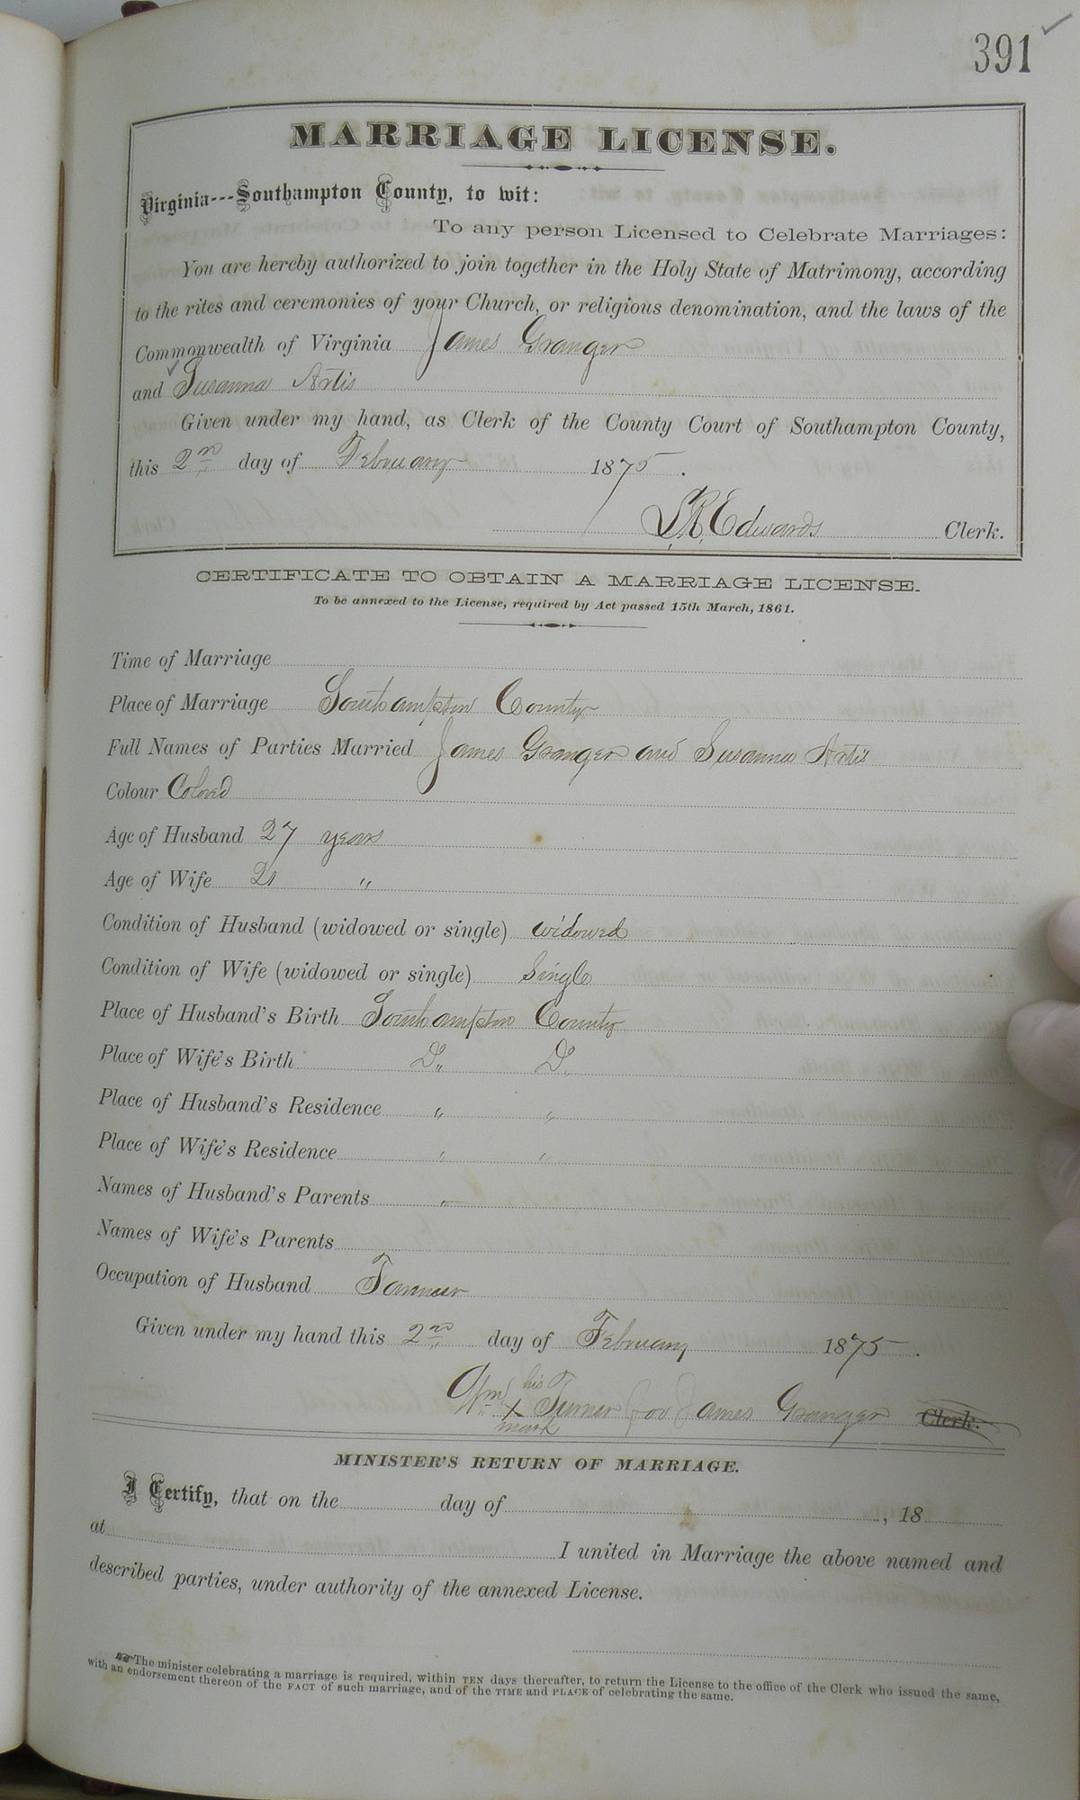 391
MARRIAGE LICENSE.
Virginia---Southampton County, to wit:
To any person Licensed to Celebrate Marriages:
You are hereby authorized to join together in the Holy State of Matrimony, according
to the rites and ceremonies of your Church, or religious denomination, and the laws of the
Commonwealth of Virginia James Granger
and Susanna Artis
Given under my hand, as Clerk of the County Court of Southampton County,
this 2nd day of February 1875.
L.R. Edwards Clerk.
CERTIFICATE TO OBTAIN A MARRIAGE LICENSE.
To be annexed to the License, required by Act passed 15th March, 1861.
Time of Marriage
Place of Marriage Southampton County
Full Names of Parties Married James Granger and Susanna Artis
Colour Colored
Age of Husband 27 years
Age of Wife 21 "
Condition of Husband (widowed or single) widowed
Condition of Wife (widowed or single) Single
Place of Husband's Birth Southampton County
Place of Wife's Birth D. D.
Place of Husband's Residence " "
Place of Wife's Residence " "
Names of Husband's Parents "
Names of Wife's Parents
Occupation of Husband Farmer
Given under my hand this 2nd day of February 1875.
Wm his X mark Turner for James Granger Clerk.
MINISTER'S RETURN OF MARRIAGE.
I Certify, that on the day of , 18
at I united in Marriage the above named and
described parties, under authority of the annexed License.
The minister celebrating a marriage is required, within TEN days thereafter, to return the License to the office of the Clerk who issued the same,
with an endorsement thereon of the FACT of such marriage, and of the TIME and PLACE of celebrating the same.